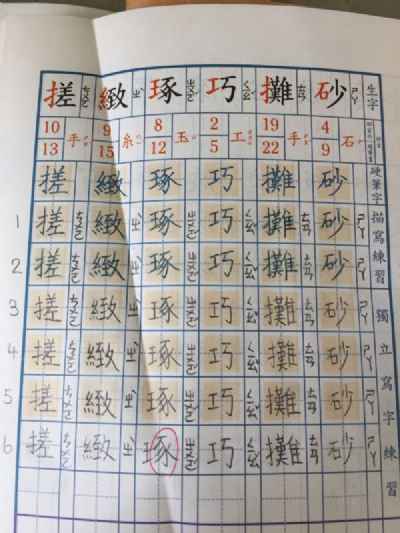 生字 硬筆字 描寫練習 獨立寫字練習
砂 ㄕㄚ 石 4 9 砂 砂 砂 砂 砂 砂 砂
ㄕㄚ ㄕㄚ ㄕㄚ ㄕㄚ ㄕㄚ ㄕㄚ
攤 ㄊㄢ 手 19 22 攤 攤 攤 攤 攤 攤 攤
ㄊㄢ ㄊㄢ ㄊㄢ ㄊㄢ ㄊㄢ ㄊㄢ
巧 ㄑㄧㄠˇ 工 2 5 巧 巧 巧 巧 巧 巧 巧
ㄑㄧㄠˇ ㄑㄧㄠˇ ㄑㄧㄠˇ ㄑㄧㄠˇ ㄑㄧㄠˇ ㄑㄧㄠˇ
琢 ㄓㄨㄛˊ 玉 8 12 琢 琢 琢 琢 琢 琢 琢
ㄓㄨㄛˊ ㄓㄨㄛˊ ㄓㄨㄛˊ ㄓㄨㄛˊ ㄓㄨㄛˊ ㄓㄨㄛˊ
緻 ㄓˋ 糸 9 15 緻 緻 緻 緻 緻 緻 緻
ㄓˋ ㄓˋ ㄓˋ ㄓˋ ㄓˋ ㄓˋ
搓 ㄘㄨㄛ 手 10 13 搓 搓 搓 搓 搓 搓 搓
ㄘㄨㄛ ㄘㄨㄛ ㄘㄨㄛ ㄘㄨㄛ ㄘㄨㄛ ㄘㄨㄛ
1 2 3 4 5 6